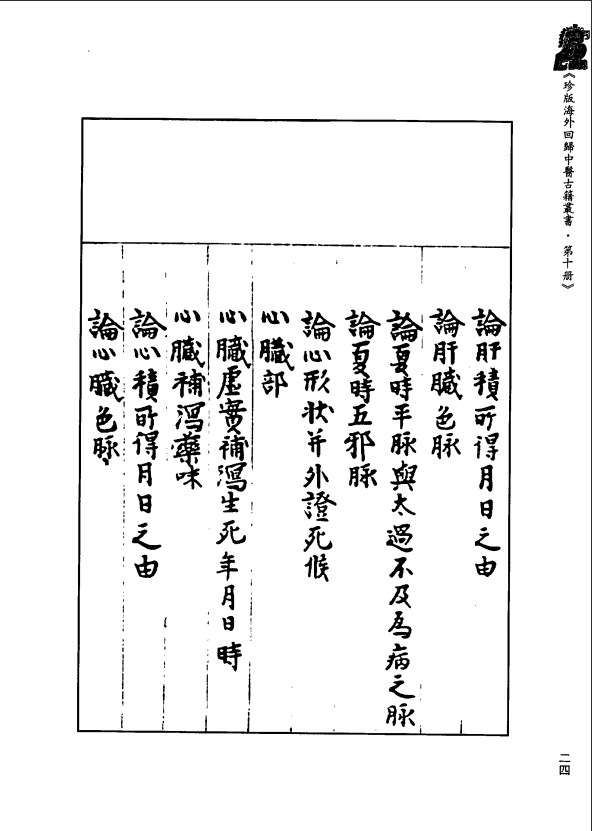 《珍版海外回歸中醫古籍叢書·第十册》
論肝積所得月日之由
論肝臟色脉
論夏時平脉與太過不及為病之脉
論夏時五邪脉
論心形状并外證死候
心臟部
心臟虛實補瀉生死年月日時
心臟補瀉藥味
論心積所得月日之由
論心臟色脉
二四